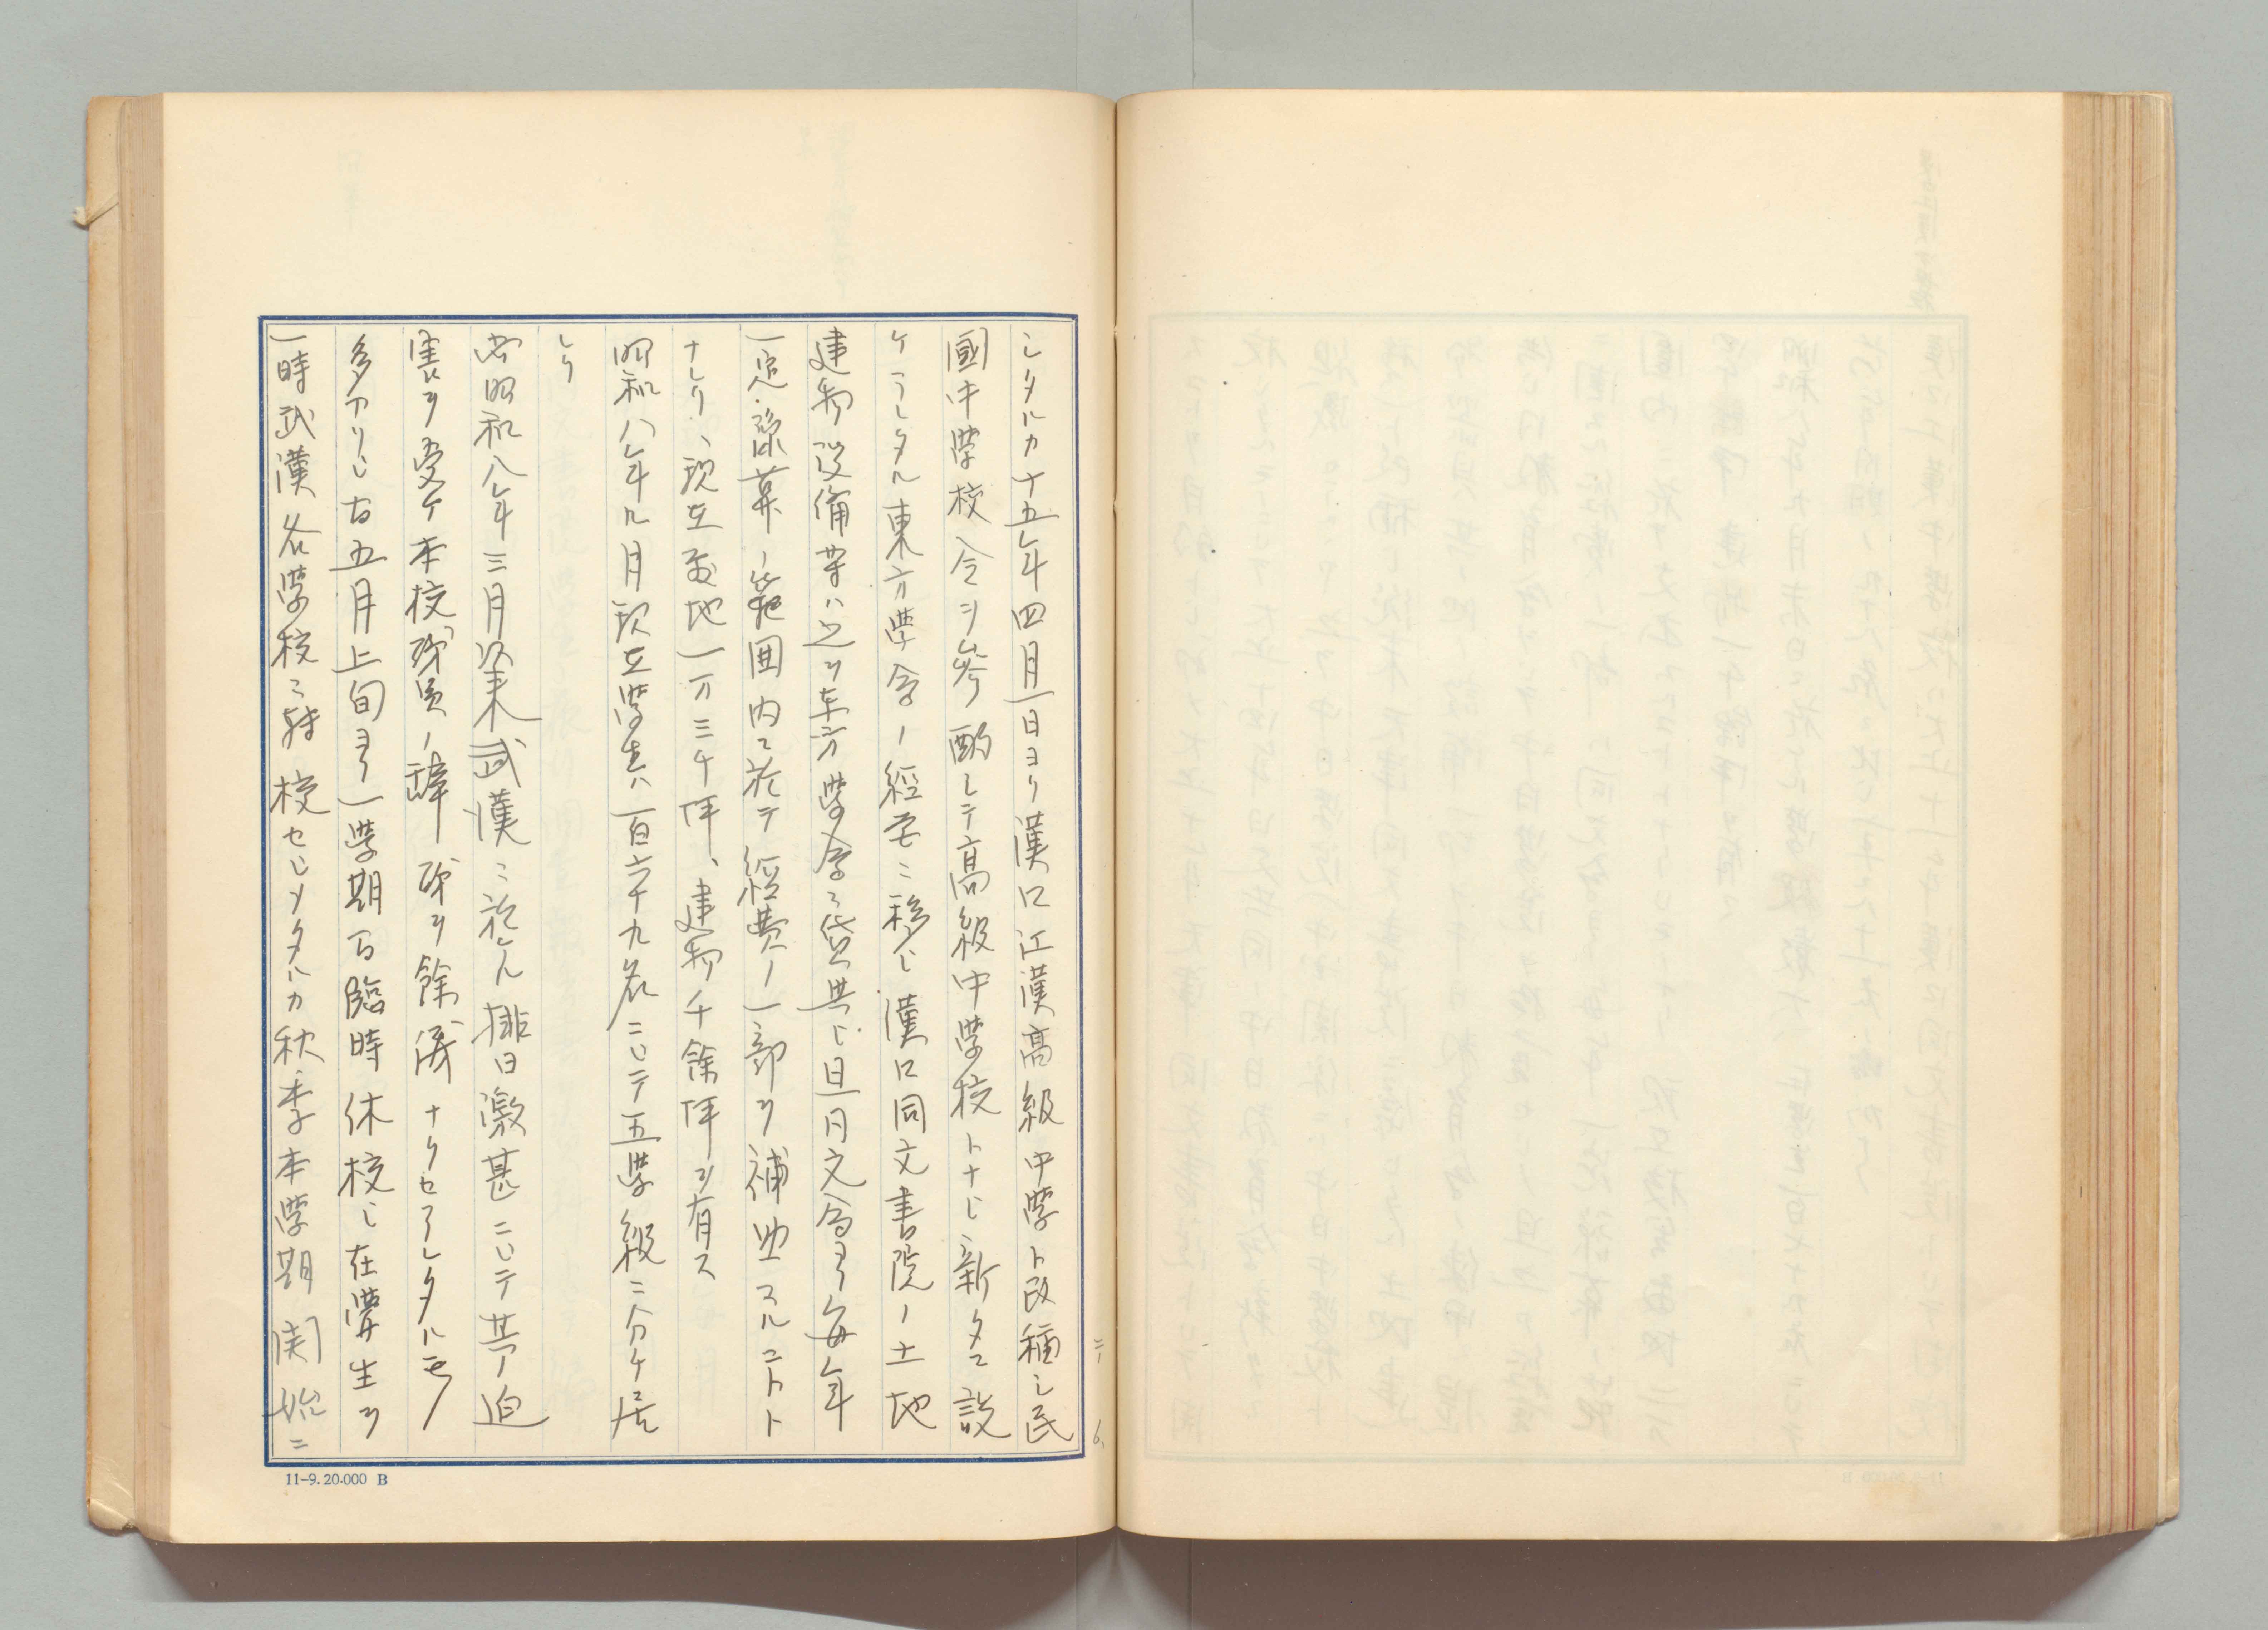 シタルカ十五年四月一日ヨリ漢口江漢高級中学ト改稱シ民
國中学校令ヲ参酌シテ高級中学校トナシ新タニ設
ケラレタル東方学会ノ経営ニ移シ漢口同文書院ノ土地
建物設備等ハ之ヲ東方学会ニ貸与シ且同文会ヨリ毎年
一定豫算ノ範囲内ニ於テ経費ノ一部ヲ補助スルコトト
ナレリ、現在敷地一万三千坪、建物千餘坪ヲ有ス
昭和八年九月現在学生ハ一百六十九名ニシテ五学級ニ分ケ居
レリ
尚昭和八年三月以来武漢ニ於ケル排日激甚ニシテ其ノ迫
害ヲ受ケ本校職員ノ辞職ヲ餘儀ナクセラレタルモノ
多カリシ為五月上旬ヨリ一学期間臨時休校シ在学生ヲ
一時武漢各学校ニ転校セシメタルカ秋季本学期開始ニ
テ
11-9.20.000 B